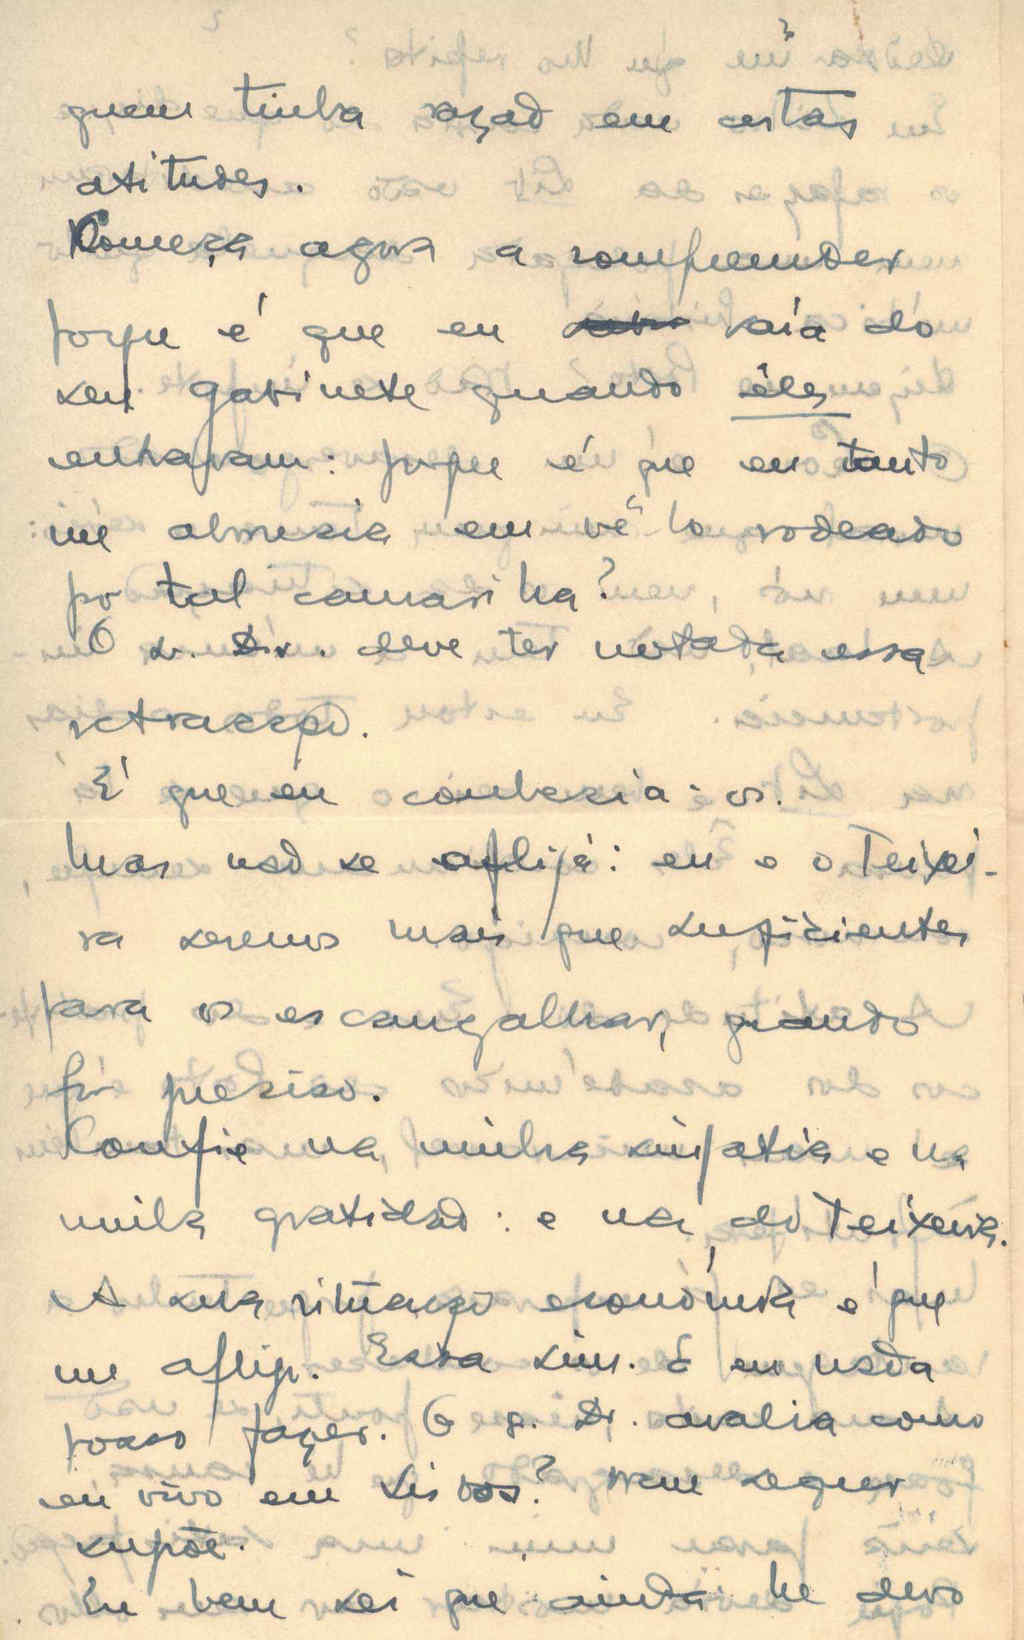 quem tinha razão em certas
atitudes.
Começa agora a compreender
porque é que eu saía do
seu gabinete quando êles
entravam: porque é que eu tanto
me aborrecia em vê-lo rodeado
por tal camarilha?
O Sr. Dr. deve ter notado essa
retracção.
É que eu conhecia-os.
Mas não se aflija: eu e o Teixei-
ra seremos mais que suficientes
para os escangalhar, quando
fôr preciso.
Confie na minha simpatia e na
minha gratidão: e na do Teixeira.
A sua situação económica é que
me aflige. Essa sim. E eu nada
posso fazer. O S. Dr. avalia como
eu vivo em Lisboa? Nem sequer
supõe.
Eu bem sei que ainda lhe devo